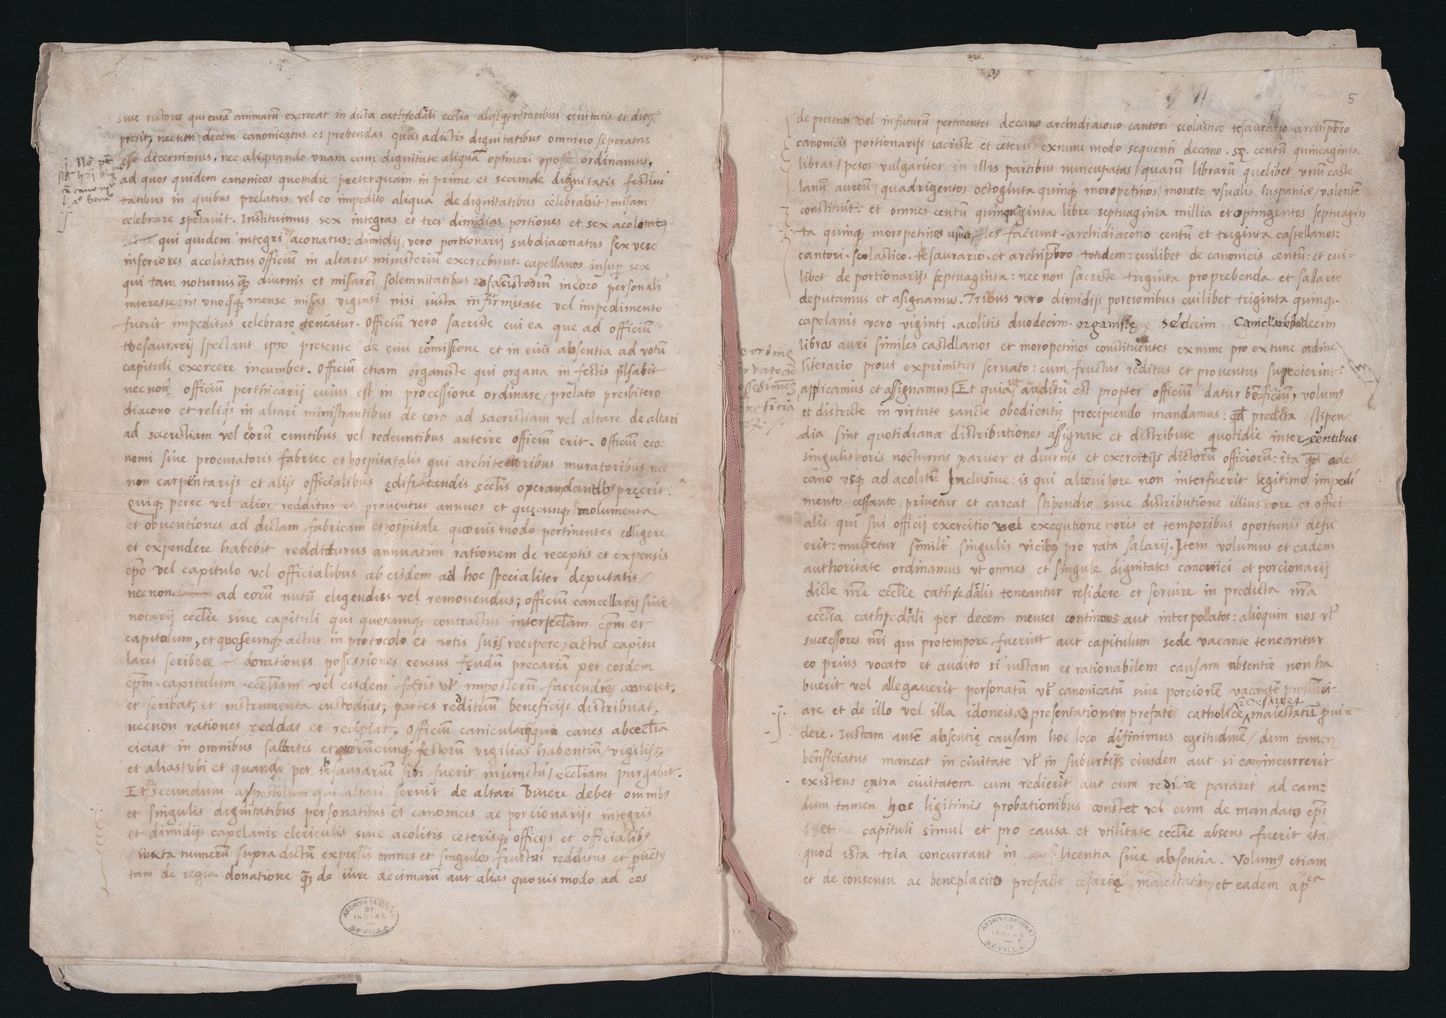 sive rectores qui curam animarum exerceat in dicta cathedrali ecclia
presit, necnon decem canonicatus et prebendas quas a dictis dignitatibus omnino seperatas
esse decernimus, nec aliquando unam cum dignitate aliqua optineri posse ordinamus,
ad quos quidem canonicos quottidie preterquam in prime et secunde dignitatis festivi
tatibus in quibus prelatus vel eo impedito aliqua de dignitatibus celebrabit missam
celebrare spectavit. Instituimus sex integras et tres dimidias portiones et sex acolitatos
qui quidem integri diaconatus: dimidij vero portionarij subdiaconatus sex vero
inferiores acolitatus officium in altaris ministerium exercebunt. capellanos insup sex
qui tam nocturnis diurnis et misarum solemnitatibus in coro personali
interesse in mense misas viginti nisi iusta infirmitate vel impedimento
fuerit impeditus celebrare teneatur. officium vero sacriste cui ea que ad officium
thesaurarij spectant ipso presente de eius comissione et in eius absentia ad votum
capituli exercere incumbet. officium etiam organiste qui organa in festis
necnon officium perthicarij cuius est in processione ordinare prelato presbitero
diacono et reliqs in altari ministrantibus de coro ad sacristiam vel altare de altari
ad sacristiam vel corum euntibus vel redeuntibus anteire officium erit. officium eco
nomi sive procuratoris fabrice et hospitatalis qui architectoribus muratoribus nec
non carpentarijs et alijs officialibus edificandis ecclis operam dantibus preerit.
quiq perse vel alior redditus et proventus annuos et quecunq emolumenta
et obventiones ad dictam fabricam et hospitale quovis modo pertinentes colligere
et expendere habebit redditurus annuatim rationem de receptis et expensis
epo vel capitulo vel officialibus ab eisdem ad hoc specialiter deputatis
necnon ad eorum nutum eligendus vel removendus; officium cancellarij sive
notarij ecclie sive capituli qui quoscunq contractus inter ecclam epm et
capitulum, et quoscunq actus in protocolo et notis suis recipere actus capitu
lares scribere donationes possessiones census feudum precariam per eosdem
epm capitulum eccliam vel eisdem fctis vl imposterum faciendis annotet,
et scribat, et instrumenta custodiat; partes redituum beneficijs distribuat,
necnon rationes reddat et recipiat. officium canicularij qui canes ab ecclia
eiciat in omnibus sabbatis et quorumcunq festorum vigilias habentium vigilijs,
et alias ubi et quando per thesaurarium sibi fuerit injunctum eccliam purgabit.
Et secundum apostolum qui altari servit de altari vivere debet omnibus
et singulis dignitatibus personatibus et canonicis ac porcionarijs integris
et dimidijs capelanis clericulis sive acolitis ceterisq officijs et officialibus
iuxta numerum supra dictum expressis omnes et singulos fructus redditus et
tam de regia donatione de iure decimarum aut alias quovis modo ad eos
ARCHIVO GENERAL
DE
INDIAS
SEVILLA
5
de presenti vel in futurum pertinentes decano archidiacono cantori scolastico tesaurario archipbro
canonicis portionarijs sacriste et ceteris exnunc modo sequenti decano centum quincaginta
libras pesos vulgariter in illis partibus nuncupatas quarum librarum quelibet unum caste
lanum aureum quadrigentos octoginta quinq moropetinos monete usualis hispanice valentem
constituit. et omnes centum quinquaginta libre septuaginta millia et septingentos septuagin
ta quinq moropetinos usuales faciunt. archidiacono centum et triginta castellanos:
cantori. scolastico. tesaurario. et archipbro. totidem: cuilibet de canonicis centum: et cui
libet de portionarijs septuaginta: necnon sacriste triginta pro prebenda et sallario
deputamus et assignamus. Tribus vero dimidijs porcionibus cuilibet triginta quinq.
capelanis vero viginti. acolitis duodecim. organiste
libras auri similes castellanos et moropetinos constituentes exnunc pro extunc ordine
literario prout exprimitur servato: cum fructus reditus et proventus supecierint:
applicamus et assignamus. Et quia auditum est propter officium datur beneficium, volumus
et districte in virtute sancte obedientie precipiendo mandamus: qd predicta stipen
dia sint quotidiane distributiones assignate et distribute quotidie interessentibus
singulis horis nocturnis pariter et diurnis et exercitijs dictorum officiorum: ita a de
cano usq ad acolitum inclusive: is qui alicui hore non interfuerit legitimo impedi
mento cessante, privetur et careat stipendio sive distributione illius hore et offici
alis qui sui officij exercitio vel exequtione horis et temporibus oportunis defu
erit: multetur similr singulis vicibus pro rata salarij. Item volumus et eadem
authoritate ordinamus vt omnes et singule dignitates canonici et porcionarij
dicte nre ecclie cathedralis teneantur residere et servire in predicta nra
ecclia cathedrali per decem menses continuos aut interpollatos: alioquin nos vl
successores nri qui protempore fuerint aut capitulum sede vacante teneantur
eo prius vocato et audito si iustam et rationabilem causam absentie non ha
buerit vel allegaverit personatum vl canonicatum sive porcionem vacantem pronunci
are et de illo vel illa idoneis ad presentationem prefate catholice maiestatis provi
dere. Iustam autem absentie causam hoc loco difinimus egritudinem dum tamen
beneficiatus maneat in civitate vl in suburbijs eiusdem aut si eam incurrerit
existens extra civitatem cum redierit aut cum redire pararet ad eam:
dum tamen hoc ligitimis probationibus constet vel cum de mandato epi
et capituli simul et pro causa et utilitate ecclie absens fuerit ita
quod ista tria concurrant in licentia sive absentia. Volumus etiam
et de consensu ac beneplacito prefate cesaree maiestatis et eadem apca
ARCHIVO GENERAL
DE
INDIAS
SEVILLA